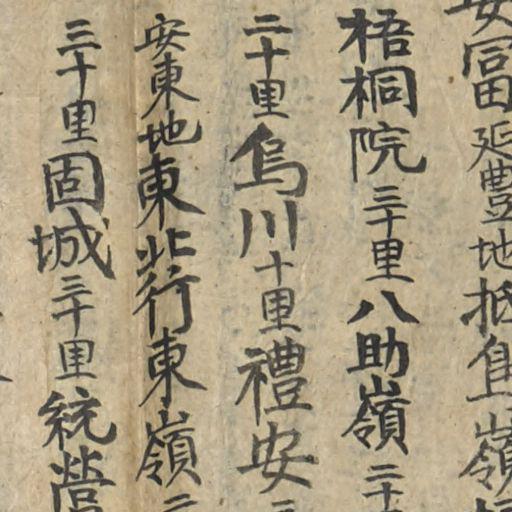 安冨延豊地抵鳥嶺
梧桐院三十里八助嶺二十
二十里烏川十里禮安
安東地東北行東嶺
三十里固城三十里統營